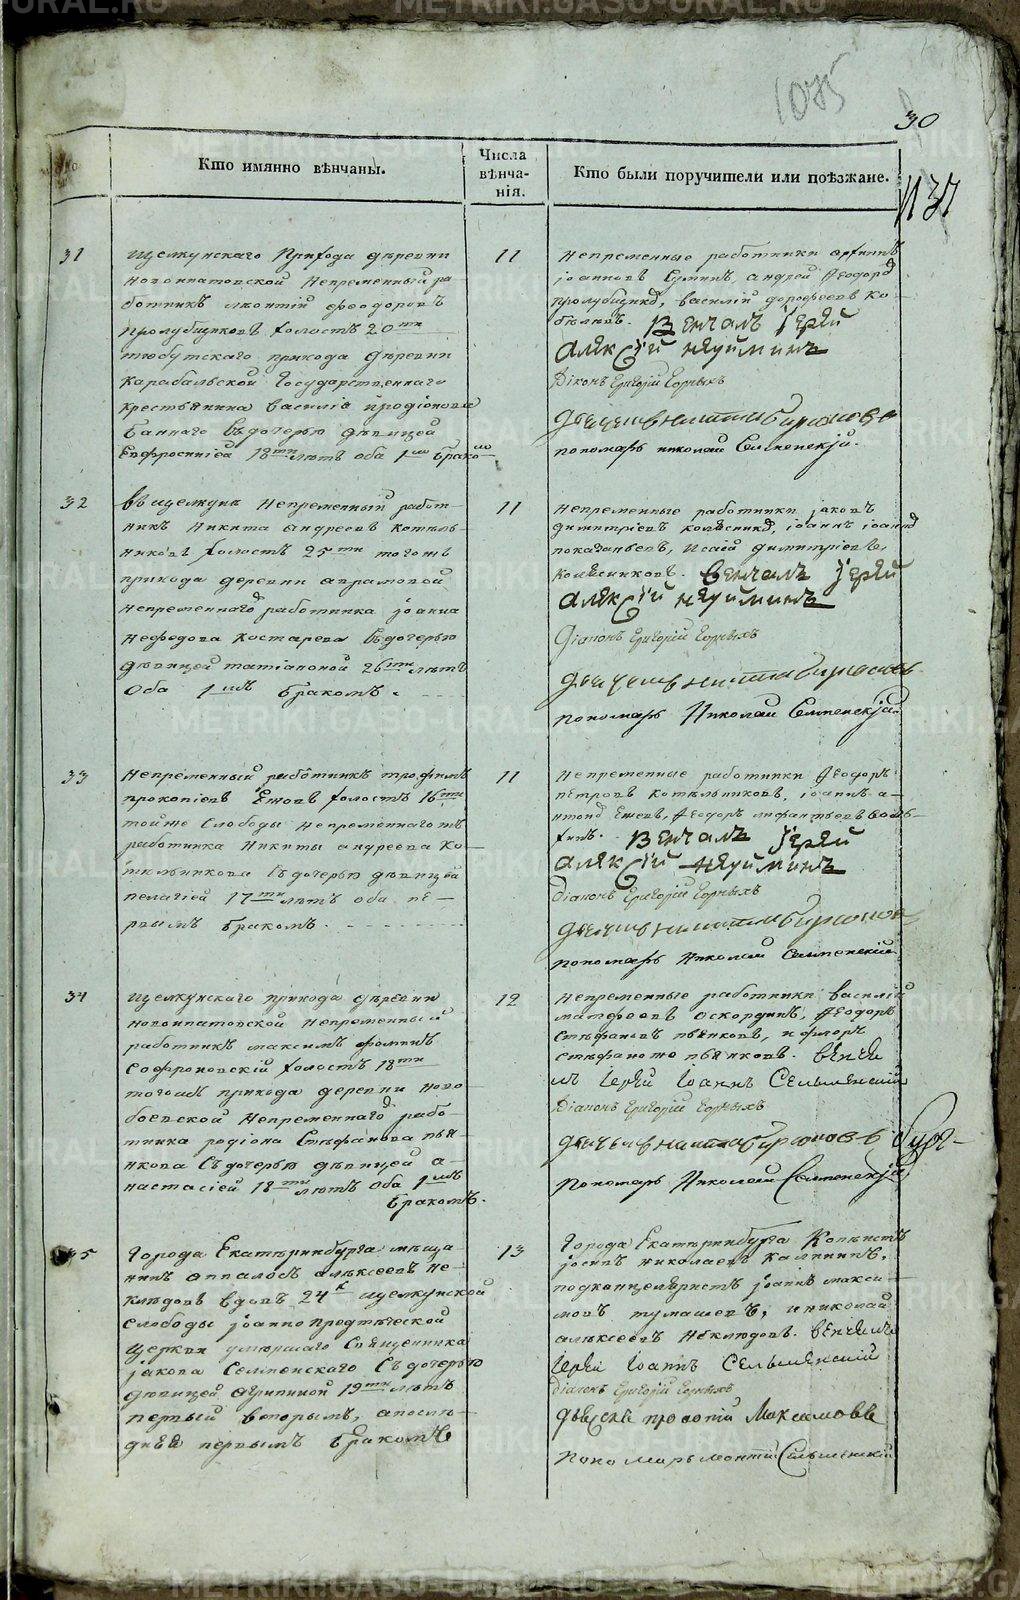 1075
30
1137
Кто имянно вѣнчаны.
Числа
вѣнча-
нія.
Кто были поручители или поѣзжане.
31
Щелкунскаго Прихода дѣревни
новоипатовской Непременный ра
ботникъ леонтій феодоровъ
Пролубщиковъ холостъ 20ти
прихода дѣревни
Карабальской Государственнаго
крестьянина василія продіонова
баннаго съ дочерью дѣвицей
Евфросиніей 18ти лѣтъ оба 1мъ бракомъ
11
Непременные работники
іоанновъ андрей Феодоровъ
Пролубщиковъ, василій дорофеевъ ко-
бѣлевъ. Венчалъ Іерей
Алексій Наумминъ
Діаконъ Григорій Горныхъ
дьячекъ никита Бирюковъ
пономарь николай Селменскій.
32
въ щелкунѣ Непременный работ-
никъ Никита андреевъ котель-
никовъ холостъ 25ти тогожъ
прихода деревни аврамовой
Непременнаго работника іоанна
Нефедова костарева съ дочерью
дѣвицей татіаной 26ти лѣтъ
Оба 1мъ бракомъ.
11
Непременные работники іаковъ
димитріевъ колясников, іоаннъ іоаннов
исаія димитріевъ
колясниковъ. Венчалъ Іерей
Алексій Наумминъ
Діаконъ Григорій Горныхъ
дьячекъ никита Бирюковъ
пономарь Николай Селменскій.
33
Непременный работникъ трофимъ
прокопіевъ Ежовъ холостъ 16ти
тойже Слободы непременнаго
работника Никиты андреева Ко-
тельникова съ дочерью дѣвицей
пелагіей 17ти лѣтъ оба пе-
рвымъ бракомъ.
11
Непременные работники Феодоръ
петровъ котѣльниковъ, іоаннъ а-
Ежевъ, Феодоръ
Венчалъ Іерей
Алексій Наумминъ
Діаконъ Григорій Горныхъ
дьячекъ никита Бирюковъ
пономарь Николай Селменскій
34
Щелкунскаго прихода дѣревни
новоипатовской непременный
работникъ максимъ фоминъ
Софроновскій холостъ 18ти
тогожъ прихода деревни ново
боевской Непременнаго рабо-
тника родіона Стефанова пьян-
кова Съ дочерью дѣвицей а-
настасіей 18ти лѣтъ Оба 1мъ
бракомъ.
12
Непременные работники василій
матфеевъ оскординъ, Феодоръ
Стефановъ пьянковъ, и флоръ
Стефановъ пьянковъ. Вѣнча
лъ Іерей Іоаннъ Сельменскій
Діаконъ Григорій Горныхъ
дьячекъ никита Бирюковъ
пономарь Николай Селменскій
35
Города Екатѣринбурга мѣща-
нинъ алѣксеевъ не-
клюдовъ вдовъ 24х щелкунской
Слободы іоанно предтѣческой
Церкви умершаго Священника
іакова Селменскаго Съ дочерью
дѣвицей агрипиной 19ти лѣтъ
первый вторымъ, а послѣ-
дняя первымъ бракомъ
13
Города Екатѣринбурга Копѣистъ
іосипъ николаевъ Калининъ,
подканцеляристъ іоаннъ макси-
мовъ тумашевъ, и николай
алѣксеевъ неклюдовъ. Вѣнчалъ
Іерей Іоаннъ Сельменскій
Діаконъ Григорій Горныхъ
дьячекъ прокопій Максимовъ
Пономарь Сельменскій